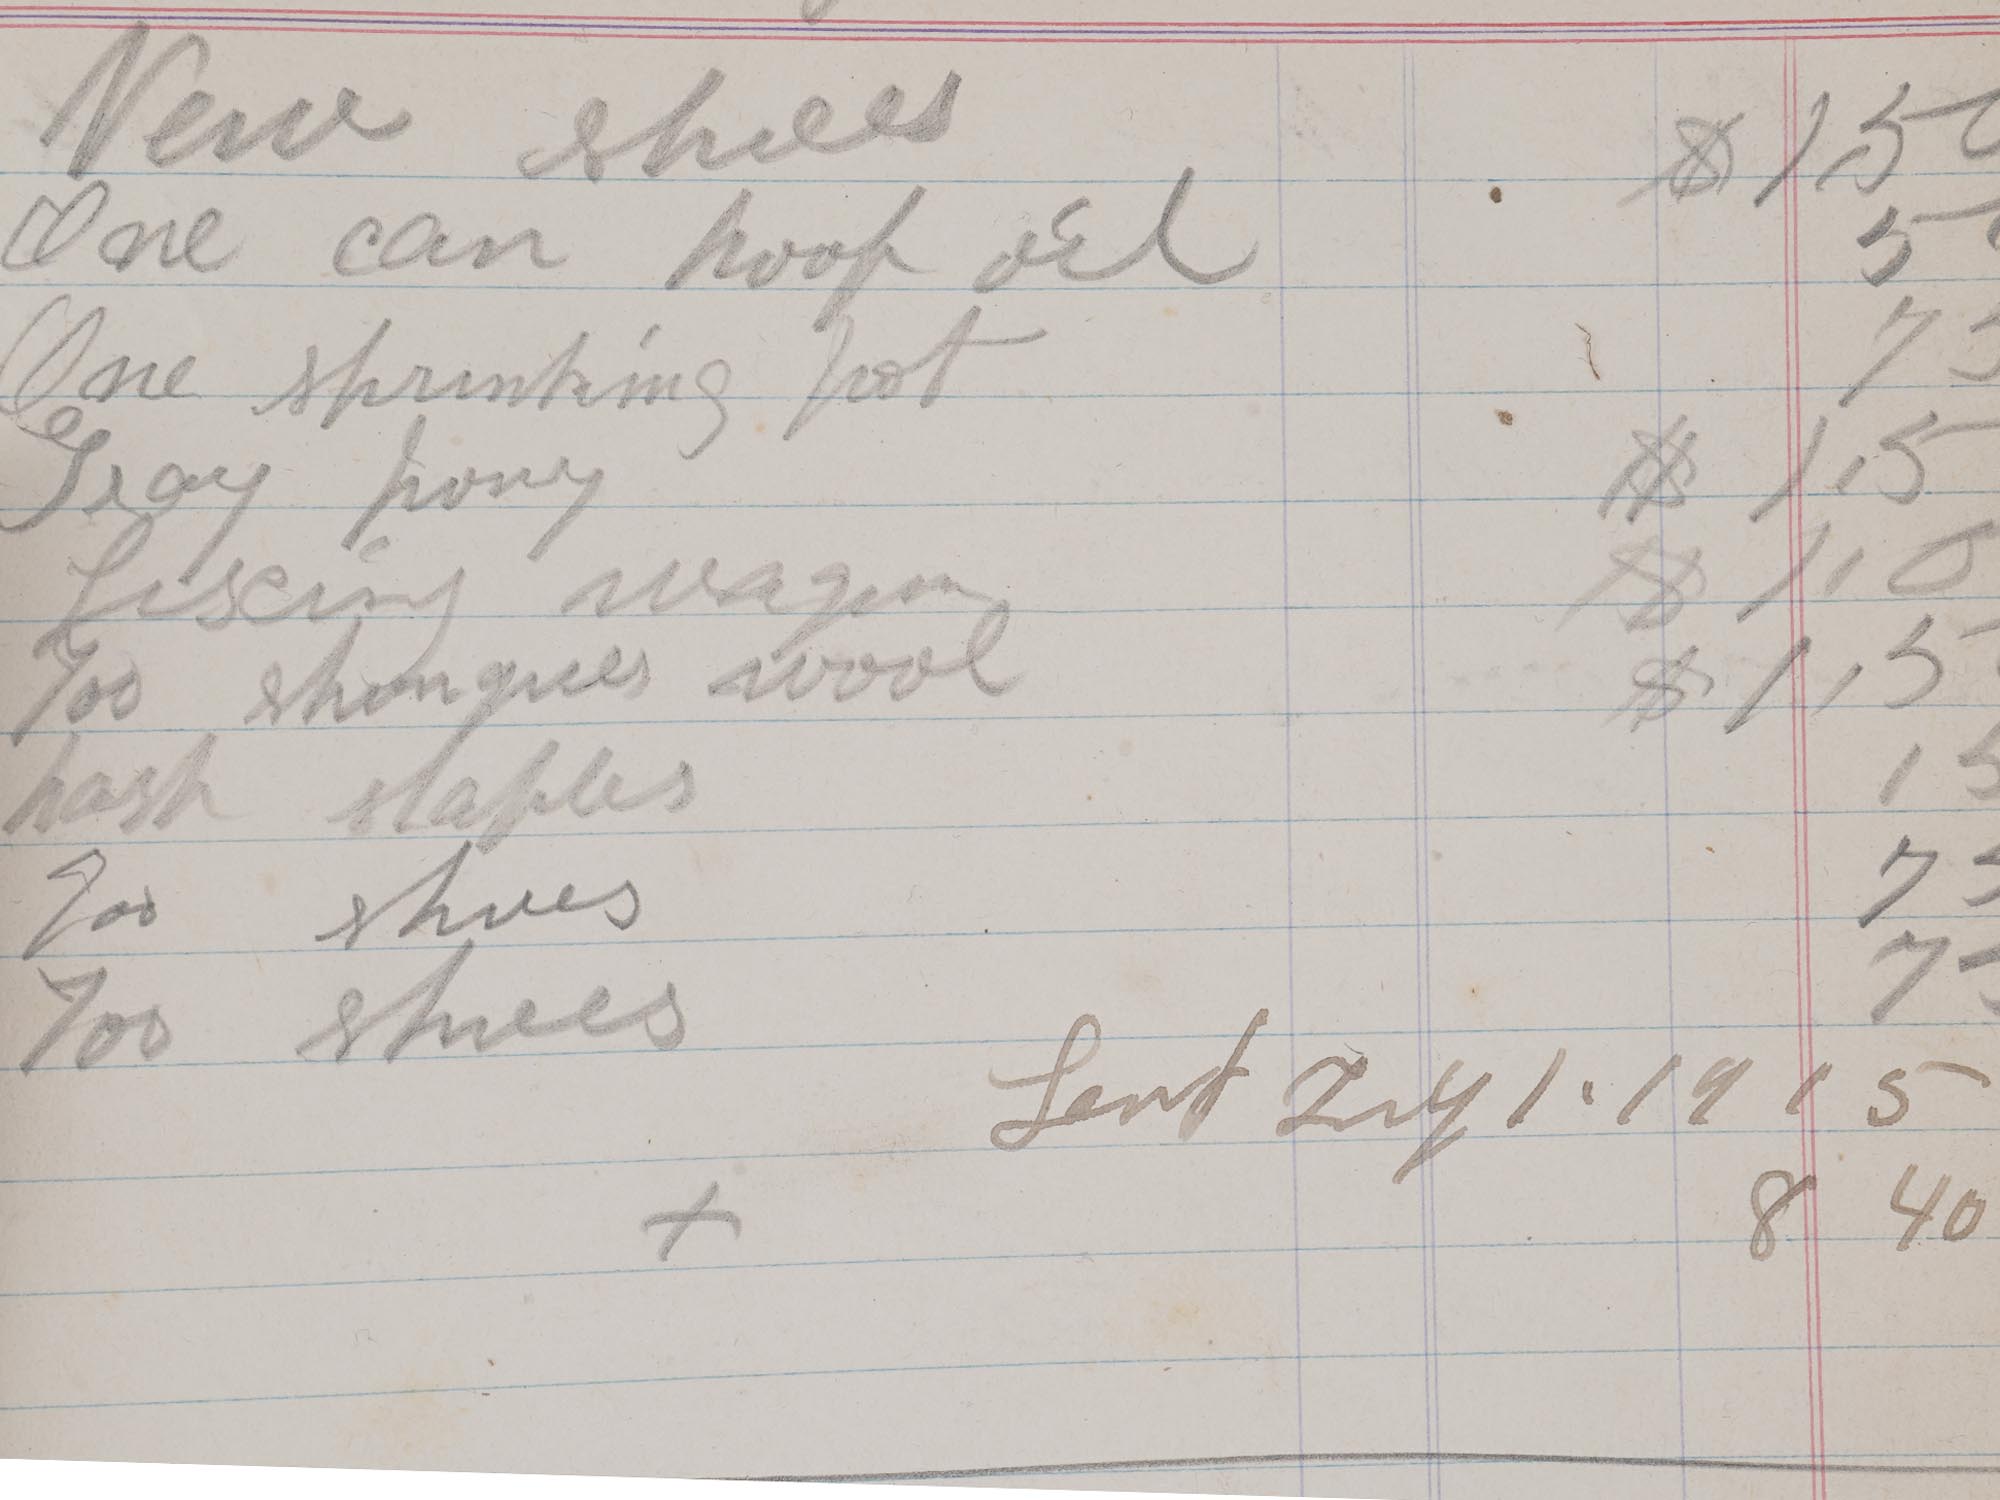 New shues $ 1.50
One can hoof oil 5
One sprinking pot 75
Gray pony $ 1.5
fiscing wagon $ 1.0
Too shongues wool $ 1.50
hash staples 15
Too shues 75
Too shues 75
Sent 1. 1915
+ 8 40